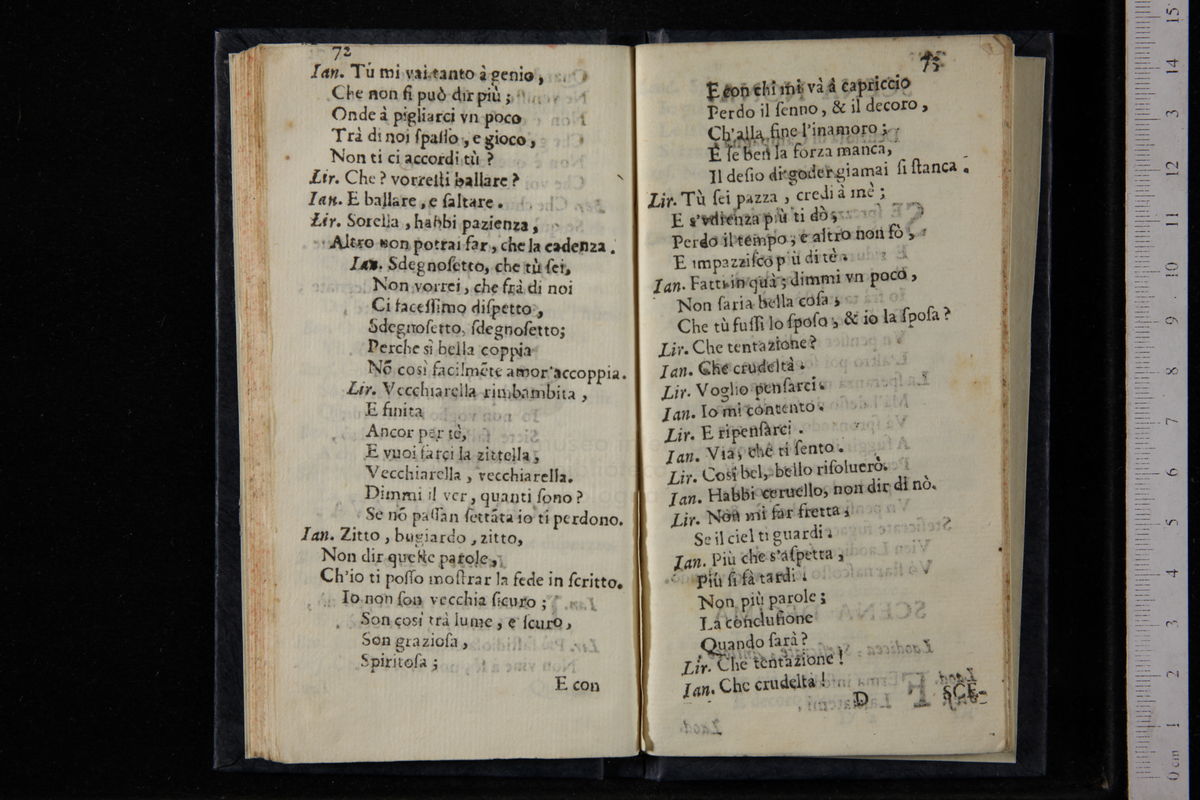 72
Ian. Tú mi vai tanto à genio,
Che non ſi può dir più;
Onde à pigliarci vn poco
Trà di noi ſpaſſo, e gioco,
Non ti ci accordi tù?
Lir. Che? vorreſti ballare?
Ian. E ballare, e ſaltare.
Lir. Sorella, habbi pazienza,
Altro non potrai far, che la cadenza.
Ian. Sdegnoſetto, che tù ſei,
Non vorrei, che frà di noi
Ci faceſſimo diſpetto,
Sdegnoſetto, ſdegnoſetto;
Perche sì bella coppia
Nõ così facilmẽte amor'accoppia.
Lir. Vecchiarella rimbambita,
E finita
Ancor per tè,
E vuoi farci la zittella,
Vecchiarella, vecchiarella.
Dimmi il ver, quanti ſono?
Se nõ paſſan ſettãta io ti perdono.
Ian. Zitto, bugiardo, zitto,
Non dir queſte parole,
Ch'io ti poſſo moſtrar la fede in ſcritto.
Io non ſon vecchia ſicuro;
Son così trà lume, e ſcuro,
Son grazioſa,
Spiritoſa;
E con
73
E con chi mi và à capriccio
Perdo il ſenno, & il decoro,
Ch'alla fine l'inamoro;
E ſe ben la forza manca,
Il deſio di goder giamai ſi ſtanca.
Lir. Tù ſei pazza, credi à mè;
E s'vdienza più ti dò,
Perdo il tempo, e altro non fò,
E impazziſco più di tè.
Ian. Fatti in quà; dimmi vn poco,
Non ſaria bella coſa,
Che tù fuſſi lo ſpoſo, & io la ſpoſa?
Lir. Che tentazione?
Ian. Che crudeltà.
Lir. Voglio penſarci.
Ian. Io mi contento.
Lir. E ripenſarci.
Ian. Via, che ti ſento.
Lir. Così bel, bello riſoluerò.
Ian. Habbi ceruello, non dir di nò.
Lir. Non mi far fretta,
Se il ciel ti guardi.
Ian. Più che s'aſpetta,
Più ſi fà tardi.
Non più parole;
La concluſione
Quando ſarà?
Lir. Che tentazione!
Ian. Che crudeltà!
D SCE-